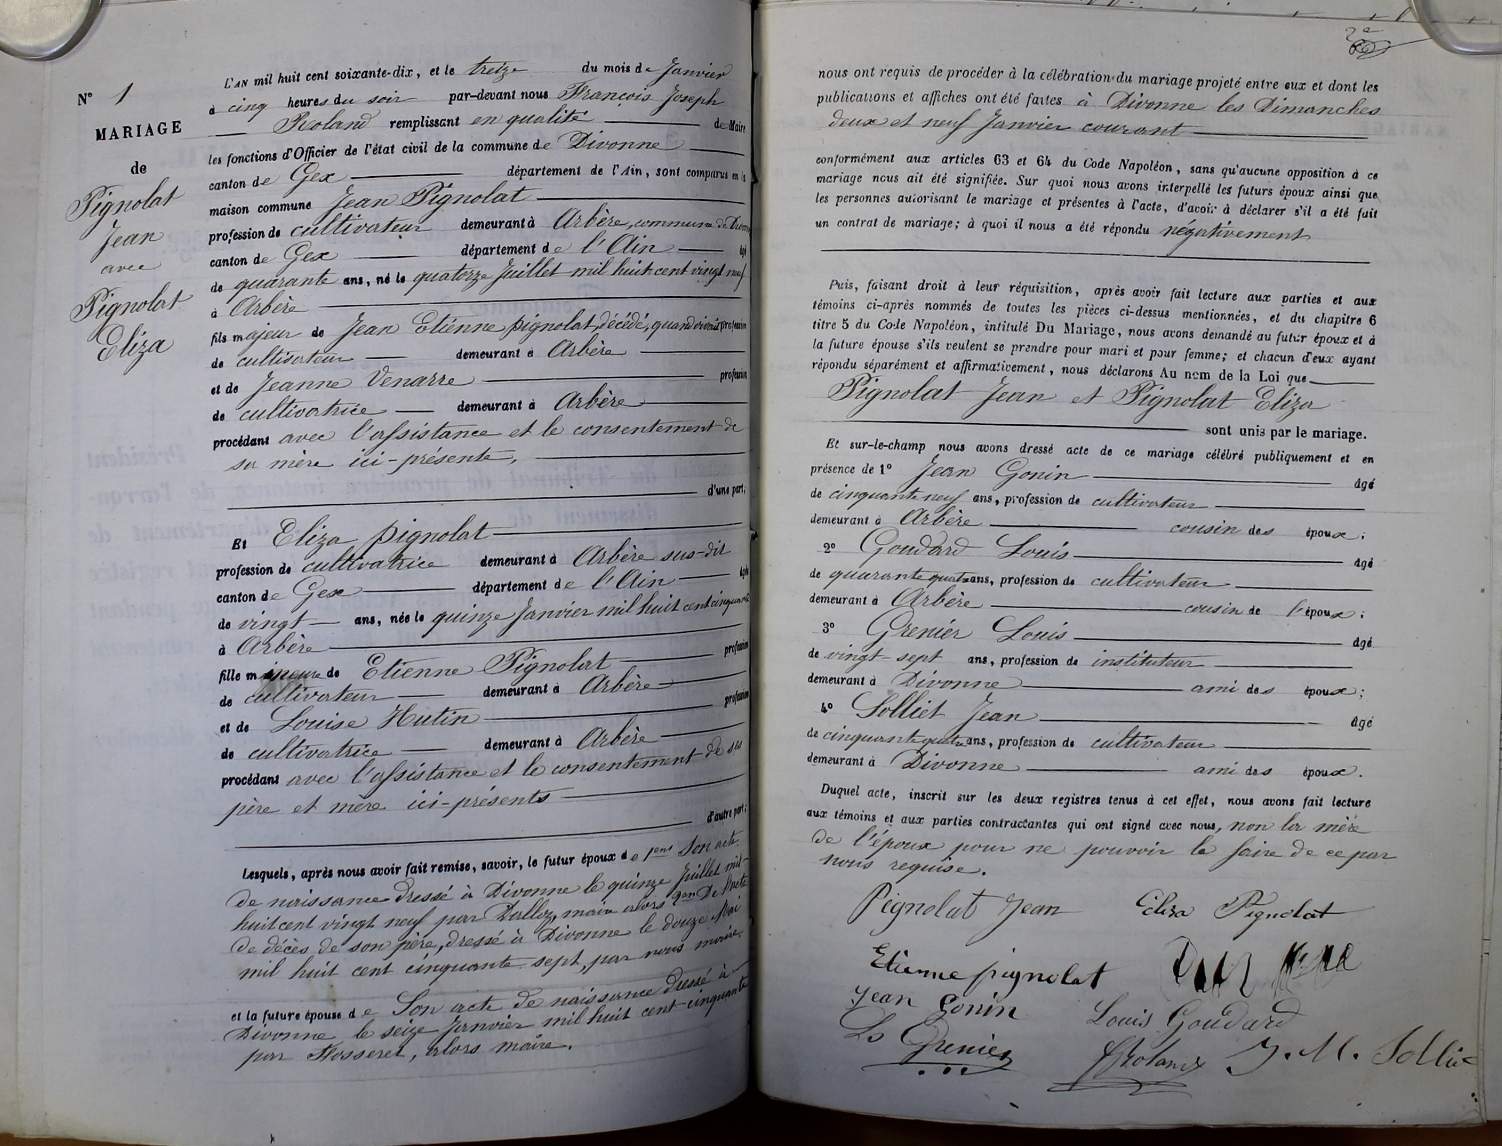 N° 1
MARIAGE
de
Pignolat
Jean
avec
Pignolat
Eliza
L'AN mil huit cent soixante-dix, et le treize du mois de Janvier
à cinq heures du soir par-devant nous François Joseph
Roland remplissant en qualité de Maire
les fonctions d'Officier de l'état civil de la commune de Divonne
canton de Gex département de l'Ain, sont comparus en la
maison commune Jean Pignolat
profession de cultivateur demeurant à Arbère, commune de Divonne
canton de Gex département de l'Ain âgé
de quarante ans, né le quatorze Juillet mil huit cent vingt neuf
à Arbère
fils majeur de Jean Etienne pignolat, décédé, quand vivait profession
de cultivateur demeurant à Arbère
et de Jeanne Venarre profession
de cultivatrice demeurant à Arbère
procédant avec l'assistance et le consentement de
sa mère ici-présente,
d'une part;
Et Eliza pignolat
profession de cultivatrice demeurant à Arbère sus-dit
canton de Gex département de l'Ain âgée
de vingt ans, née le quinze Janvier mil huit cent cinquante
à Arbère
fille mineure de Etienne Pignolat profession
de cultivateur demeurant à Arbère
et de Louise Hutin profession
de cultivatrice demeurant à Arbère
procédant avec l'assistance et le consentement de ses
père et mère ici-présents
d'autre part;
Lesquels, après nous avoir fait remise, savoir, le futur époux de 1ent Son acte
de naissance dressé à Divonne le quinze Juillet mil-
huit cent vingt neuf par Dalloz, maire alors 2ent De l'acte
de décès de son père, dressé à Divonne le douze Mai
mil huit cent cinquante sept, par nous maire.
et la future épouse de Son acte de naissance dressé à
Divonne le seize Janvier mil huit cent cinquante
par Rosseret, alors maire.
2e
nous ont requis de procéder à la célébration du mariage projeté entre eux et dont les
publications et affiches ont été faites à Divonne les Dimanches
deux et neuf Janvier courant
conformément aux articles 63 et 64 du Code Napoléon, sans qu'aucune opposition à ce
mariage nous ait été signifiée. Sur quoi nous avons interpellé les futurs époux ainsi que
les personnes autorisant le mariage et présentes à l'acte, d'avoir à déclarer s'il a été fait
un contrat de mariage; à quoi il nous a été répondu négativement
Puis, faisant droit à leur réquisition, après avoir fait lecture aux parties et aux
témoins ci-après nommés de toutes les pièces ci-dessus mentionnées, et du chapitre 6
titre 5 du Code Napoléon, intitulé Du Mariage, nous avons demandé au futur époux et à
la future épouse s'ils veulent se prendre pour mari et pour femme; et chacun d'eux ayant
répondu séparément et affirmativement, nous déclarons Au nom de la Loi que
Pignolat Jean et Pignolat Eliza
sont unis par le mariage.
Et sur-le-champ nous avons dressé acte de ce mariage célébré publiquement et en
présence de 1° Jean Gonin âgé
de cinquante neuf ans, profession de cultivateur
demeurant à Arbère cousin des époux;
2° Goudard Louis âgé
de quarante quatre ans, profession de cultivateur
demeurant à Arbère cousin de l'époux;
3° Grenier Louis âgé
de vingt-sept ans, profession de instituteur
demeurant à Divonne ami des époux;
4° Solliet Jean âgé
de cinquante quatre ans, profession de cultivateur
demeurant à Divonne ami des époux.
Duquel acte, inscrit sur les deux registres tenus à cet effet, nous avons fait lecture
aux témoins et aux parties contractantes qui ont signé avec nous, non la mère
de l'époux pour ne pouvoir le faire de ce par
nous requise.
Pignolat Jean Eliza Pignolat
Etienne pignolat
Jean Gonin Louis Goudard
Ls Grenier Roland J. M. Solliet